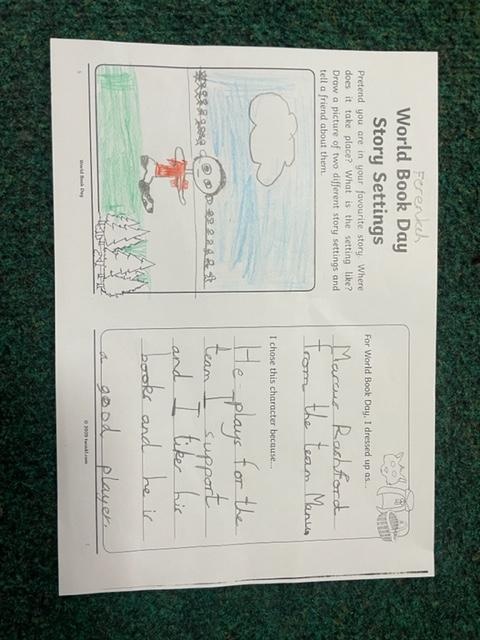 World Book Day
Story Settings
Pretend you are in your favourite story. Where
does it take place? What is the setting like?
Draw a picture of two different story settings and
tell a friend about them.
World Book Day
For World Book Day, I dressed up as...
Marcus Rashford
from the team Manu
I chose this character because...
He plays for the
team I support
and I like his
books and he is
a good player.